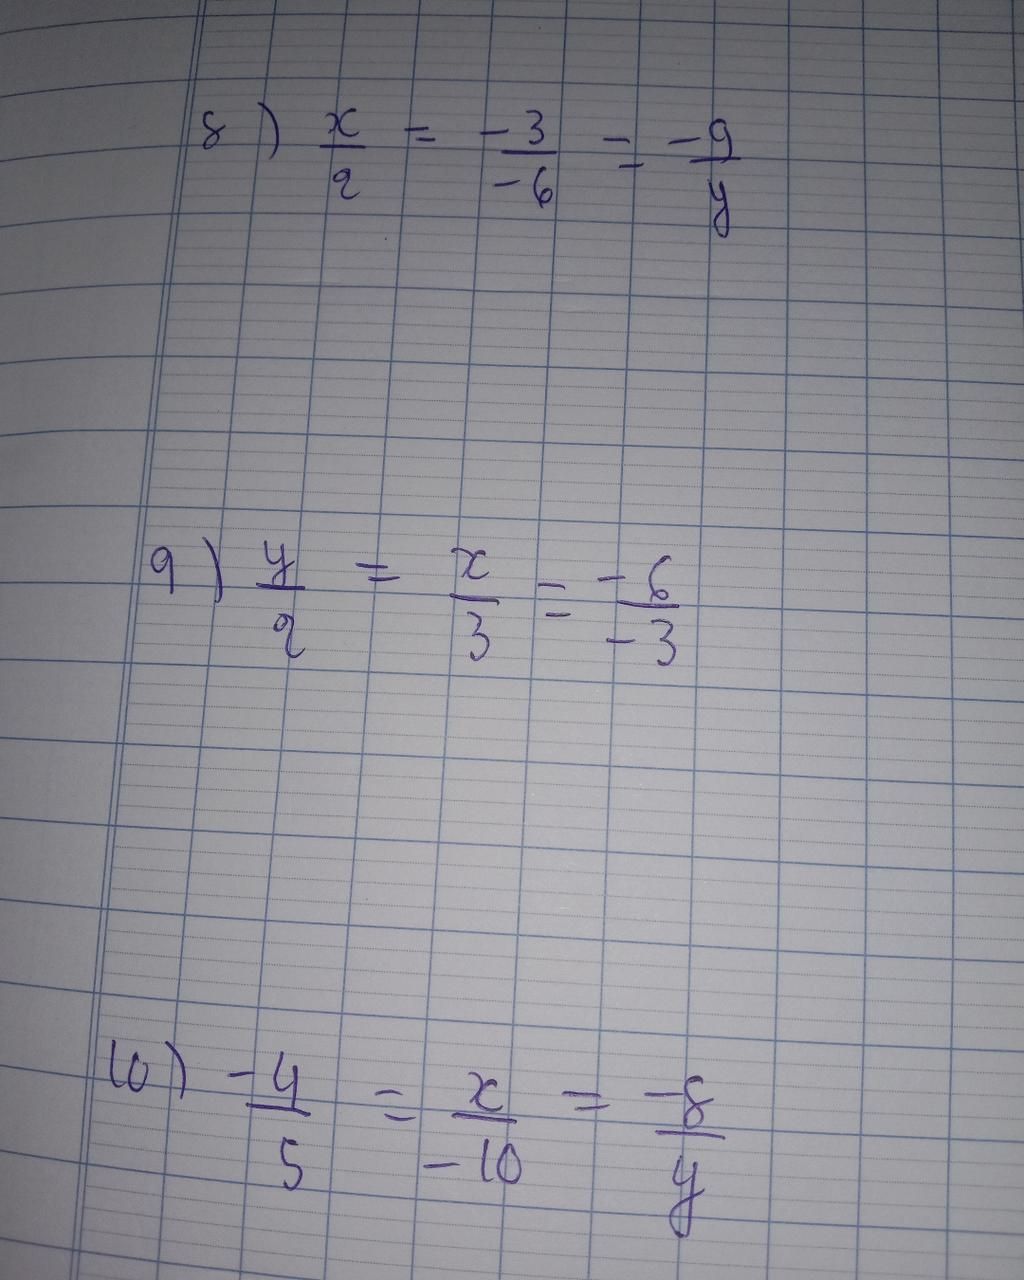 8) x/2 = -3/-6 = -9/y
9) y/2 = x/3 = -6/-3
10) -4/5 = x/-10 = -8/y